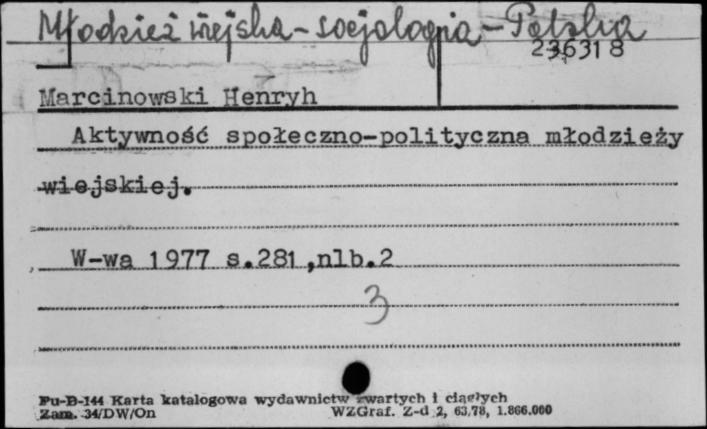 Młodzież wiejska - socjologia - Polska
236318
Marcinowski Henryh
Aktywność społeczno-polityczna młodzieży
wiejskiej.
W-wa 1977 s.281,nlb.2
3
Pu-B-144 Karta katalogowa wydawnictw zwartych i ciągłych
Zam. 34/DW/On WZGraf. Z-d 2, 63,78, 1.866.000